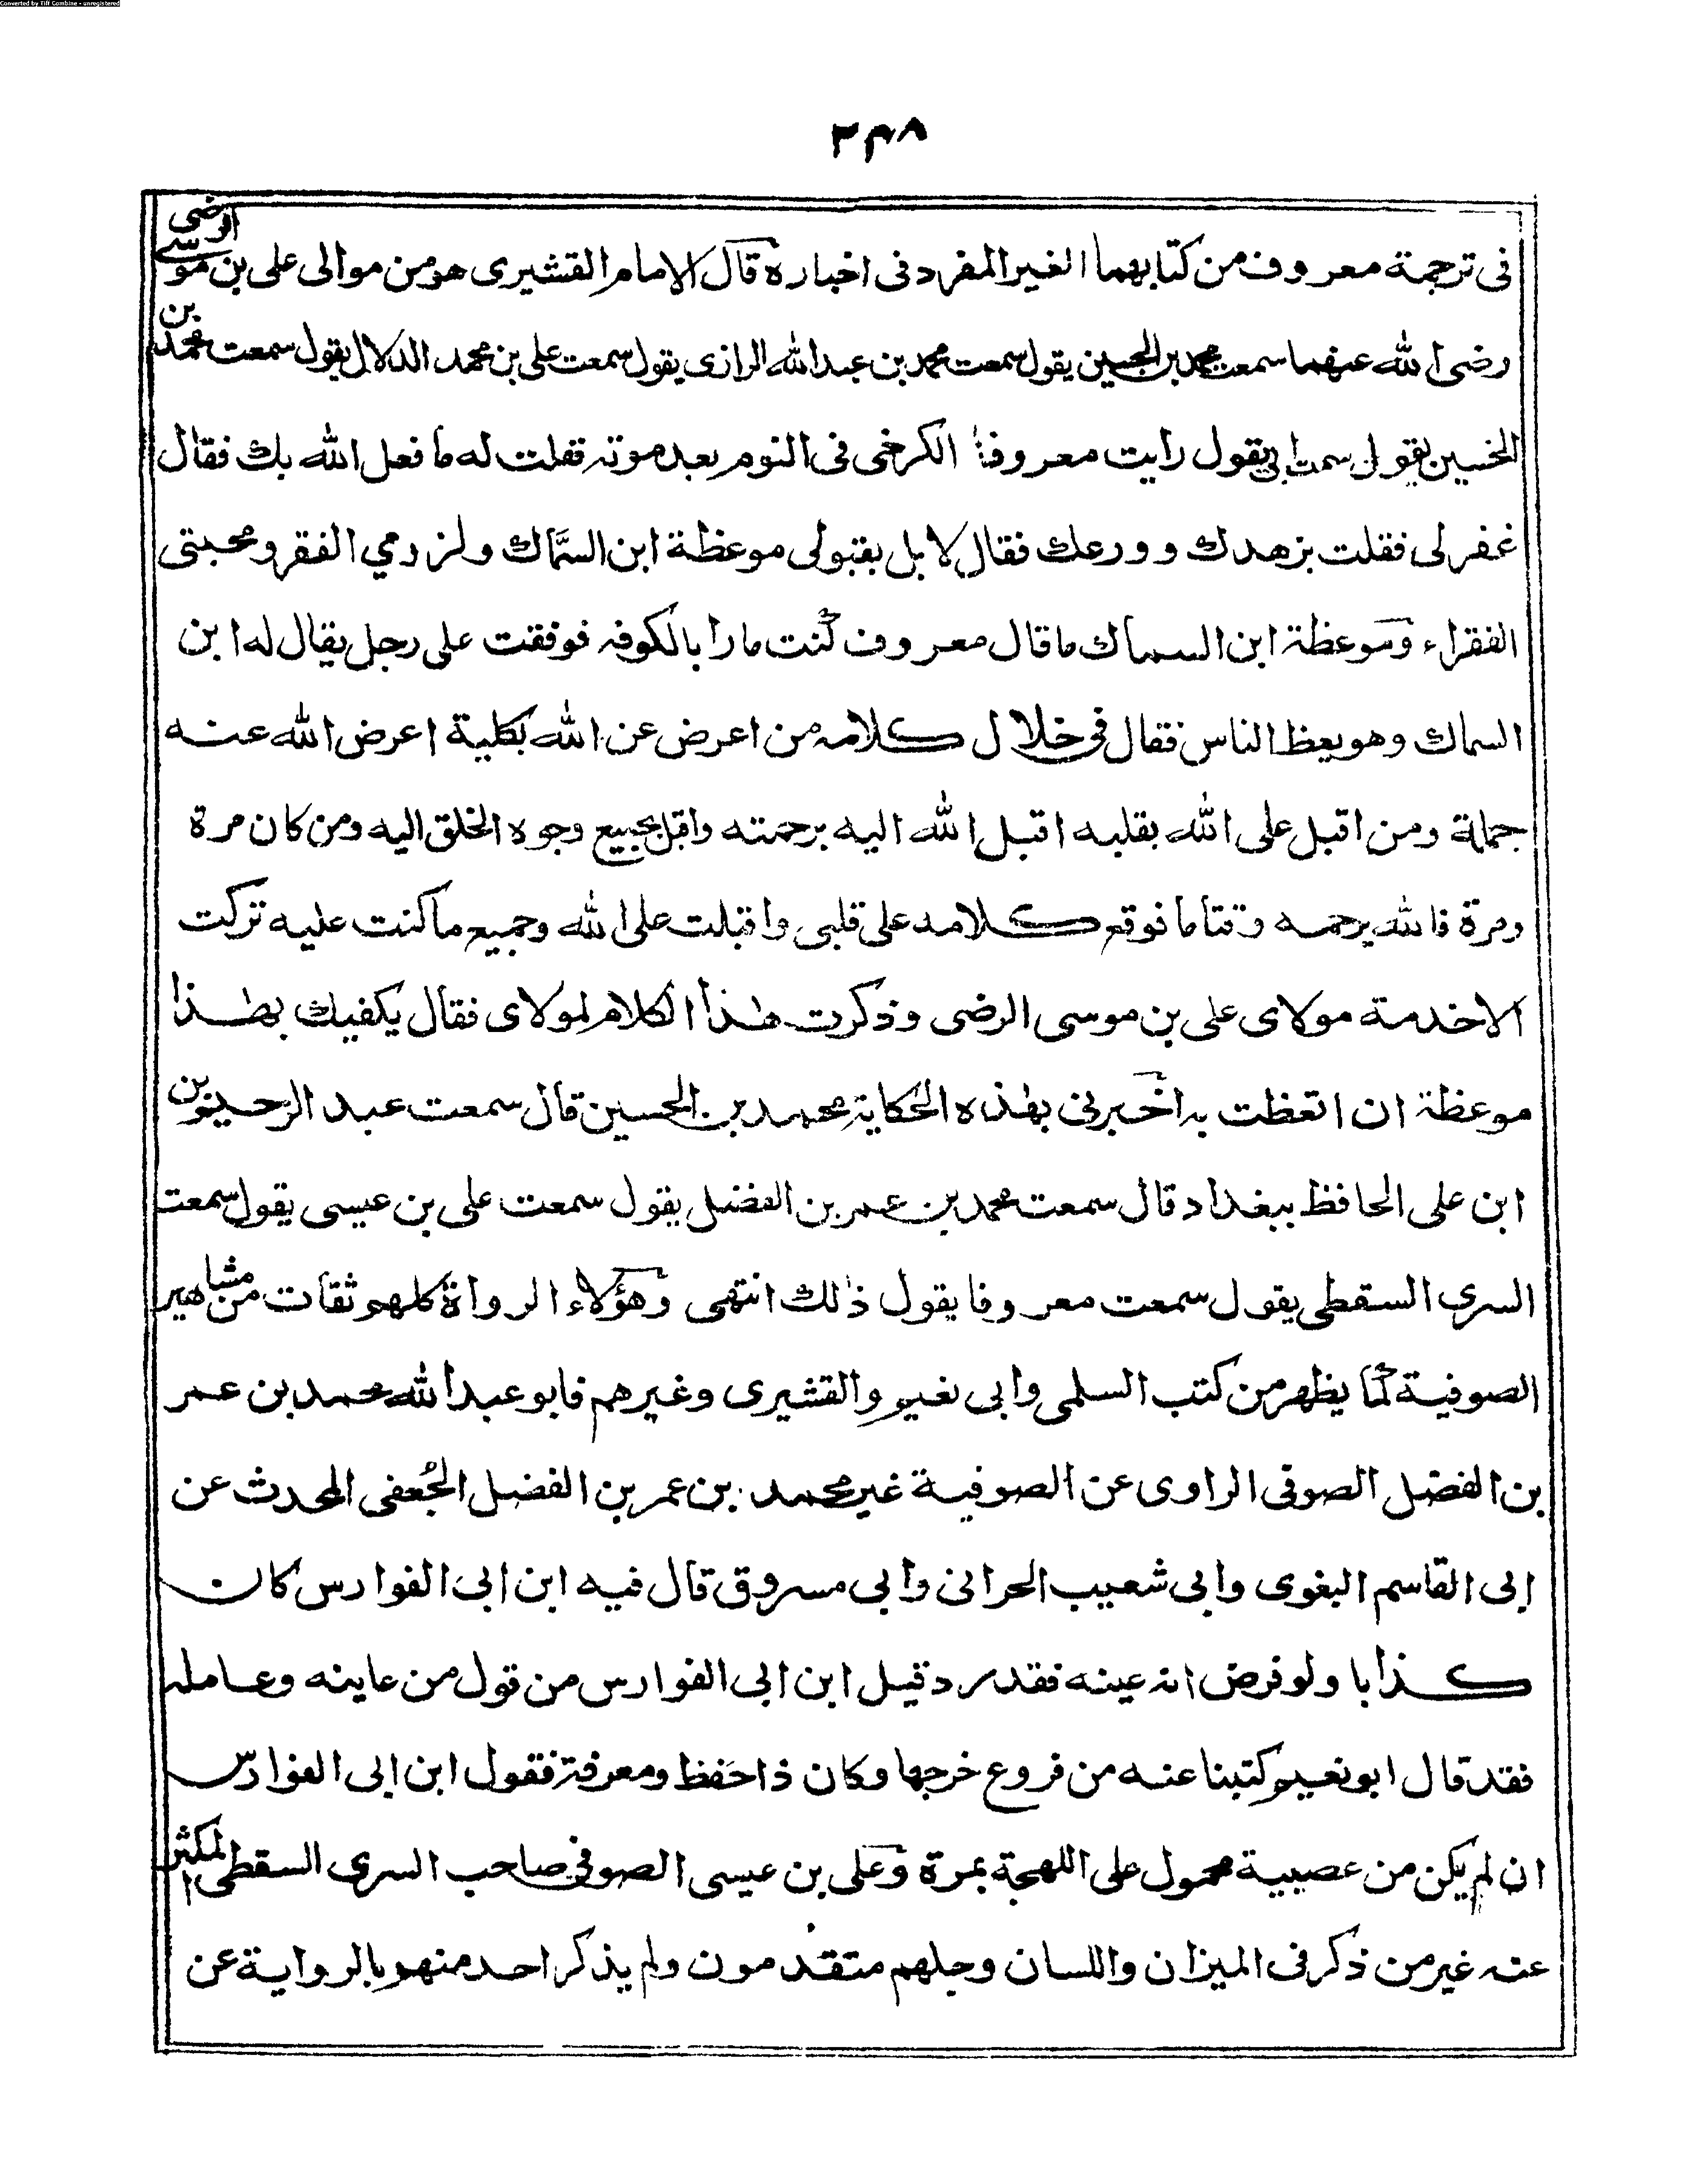 Converted by Tiff Combine - unregistered
٣٣٨
فى ترجمة معروف من كتابهما الغير المفرد فى اخباره قال الامام القشيرى هو من موالى على بن موسى الرضى
رضى الله عنهما سمعت محمد بن الحسين يقول سمعت محمد بن عبد الله الرازى يقول سمعت على بن محمد الدلال يقول سمعت محمد بن
الحسين يقول سمعت ابى يقول رايت معروفا الكرخى فى النوم بعد موته فقلت له ما فعل الله بك فقال
غفر لى فقلت بزهدك وورعك فقال لا بل بقبولى موعظة ابن السمّاك ولزومي الفقر ومحبتى
الفقراء وموعظة ابن السماك ما قال معروف كنت مارا بالكوفه فوفقت على رجل يقال له ابن
السماك وهو يعظ الناس فقال فى خلال كلامه من اعرض عن الله بكلية اعرض الله عنه
جملة ومن اقبل على الله بقلبه اقبل الله اليه برحمته واقبل بجميع وجوه الخلق اليه ومن كان مرة
ومرة فالله يرحمه وقتا ما فوقع كلامه على قلبى واقبلت على الله وجميع ما كنت عليه تركت
الاخدمة مولاى على بن موسى الرضى وذكرت هذا الكلام لمولاى فقال يكفيك بهذا
موعظة ان اتعظت به اخبرنى بهذه الحكاية محمد بن الحسين قال سمعت عبد الرحيم بن
ابن على الحافظ ببغداد قال سمعت محمد بن عمر بن الفضل يقول سمعت على بن عيسى يقول سمعت
السرى السقطى يقول سمعت معروفا يقول ذلك انتهى وهؤلاء الرواة كلهم ثقات من مشاهير
الصوفية كما يظهر من كتب السلمى وابى نعيم والقشيرى وغيرهم فابو عبد الله محمد بن عمر
بن الفضل الصوفى الراوى عن الصوفية غير محمد بن عمر بن الفضل الجُعفى المحدث عن
ابى القاسم البغوى وابى شعيب الحرانى وابى مسروق قال فيه ابن ابى الفوارس كان
كذابا ولو فرض انه عينه فقد رد قيل ابن ابى الفوارس من قول من عاينه وعامله
فقد قال ابو نعيم كتبنا عنه من فروع خرجها وكان ذا حفظ ومعرفة فقول ابن ابى الفوارس
ان لم يكن من عصبية محمول على اللهجة بمرة وعلى بن عيسى الصوفى صاحب السرى السقطى المكثر
عنه غير من ذكر فى الميزان واللسان وجلهم متقدمون ولم يذكر احد منهم بالرواية عن